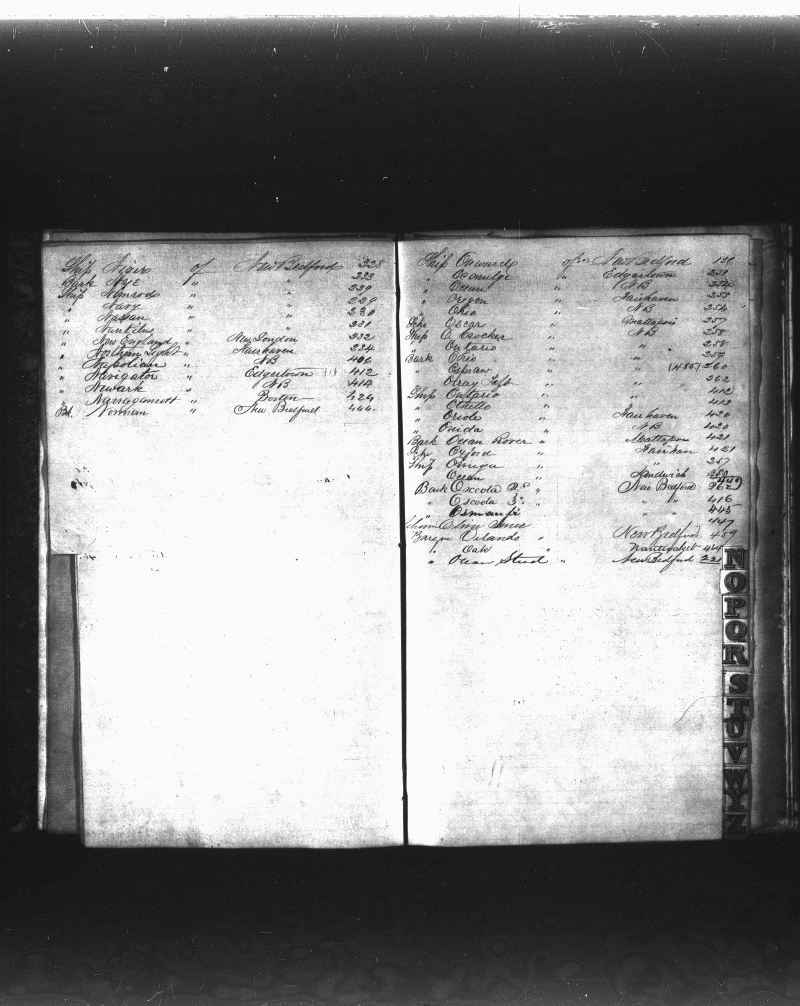 Ship Niger of New Bedford 338
Bark Nye " " 333
Ship Nimrod " " 339
" Navy " "
" Nassau " " 230
" Nautilus " 231
" New England " New London 232
" Northern Light " Fairhaven 234
" Napoleon " NB 406
" Navigator " Edgartown 412
" Newark " NB 414
" Narragansett " Boston 424
Bk Norman " New Bedford 444
Ship Onward of New Bedford 151
" Ocmulgee " Edgartown 251
" Ocean " NB 252
" Oregon " Fairhaven 253
" Ohio " NB 254
Schr Oscar " Mattapois 257
Ship O. Crocker " NB 258
" Ontario " " 258
Bark Ohio " " 259
" Ospray " " (485) 260
" Olray Taft " " 262
Ship Ontario " " 412
" Othello " "
" Oriole " Fairhaven 420
" Oneida " NB 420
Bark Ocean Rover " Mattapois 421
Schr Oxford " Fairhaven 421
Ship Omega " " 257
" Ocean " Sandwich
Bark Osceola 2d " New Bedford 262 449
" Osceola 3d " " " 416
" Osmanli " " 445
Schoon Oliver Jones 447
Barque Orlando " New Bedford 459
" Oak " Nantucket 464
" Ocean Steed " New Bedford 221
N
O
P
Q
R
S
T
U
V
W
Y
Z